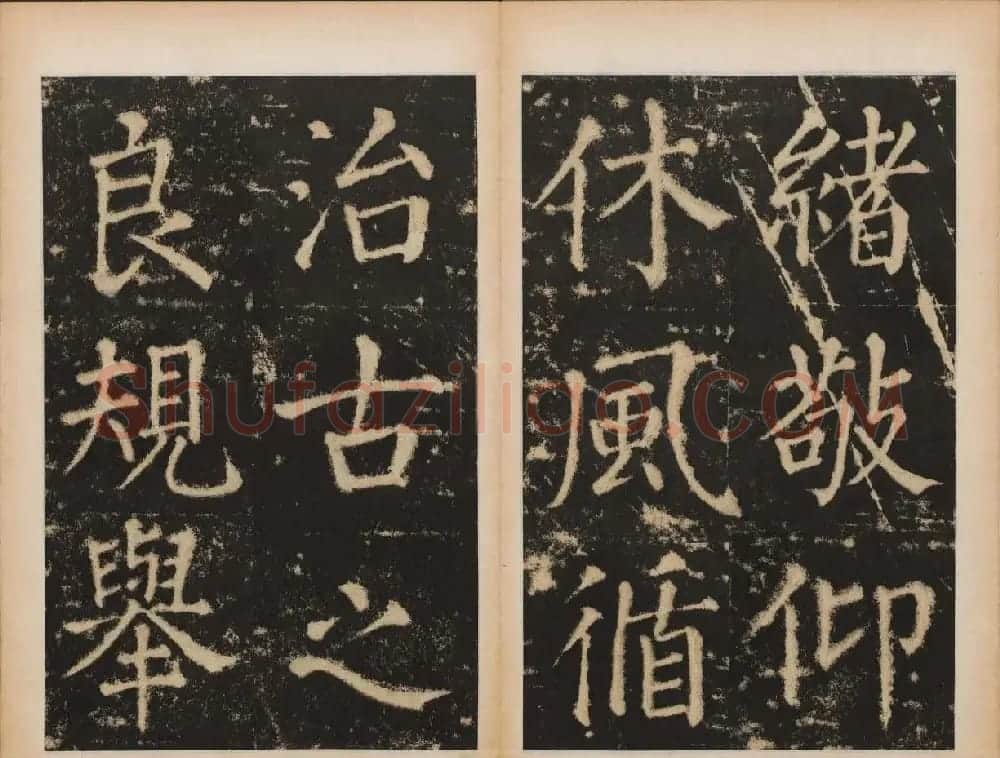 緒敬仰
休風循
治古之
良規舉
Shufaziliao.COM